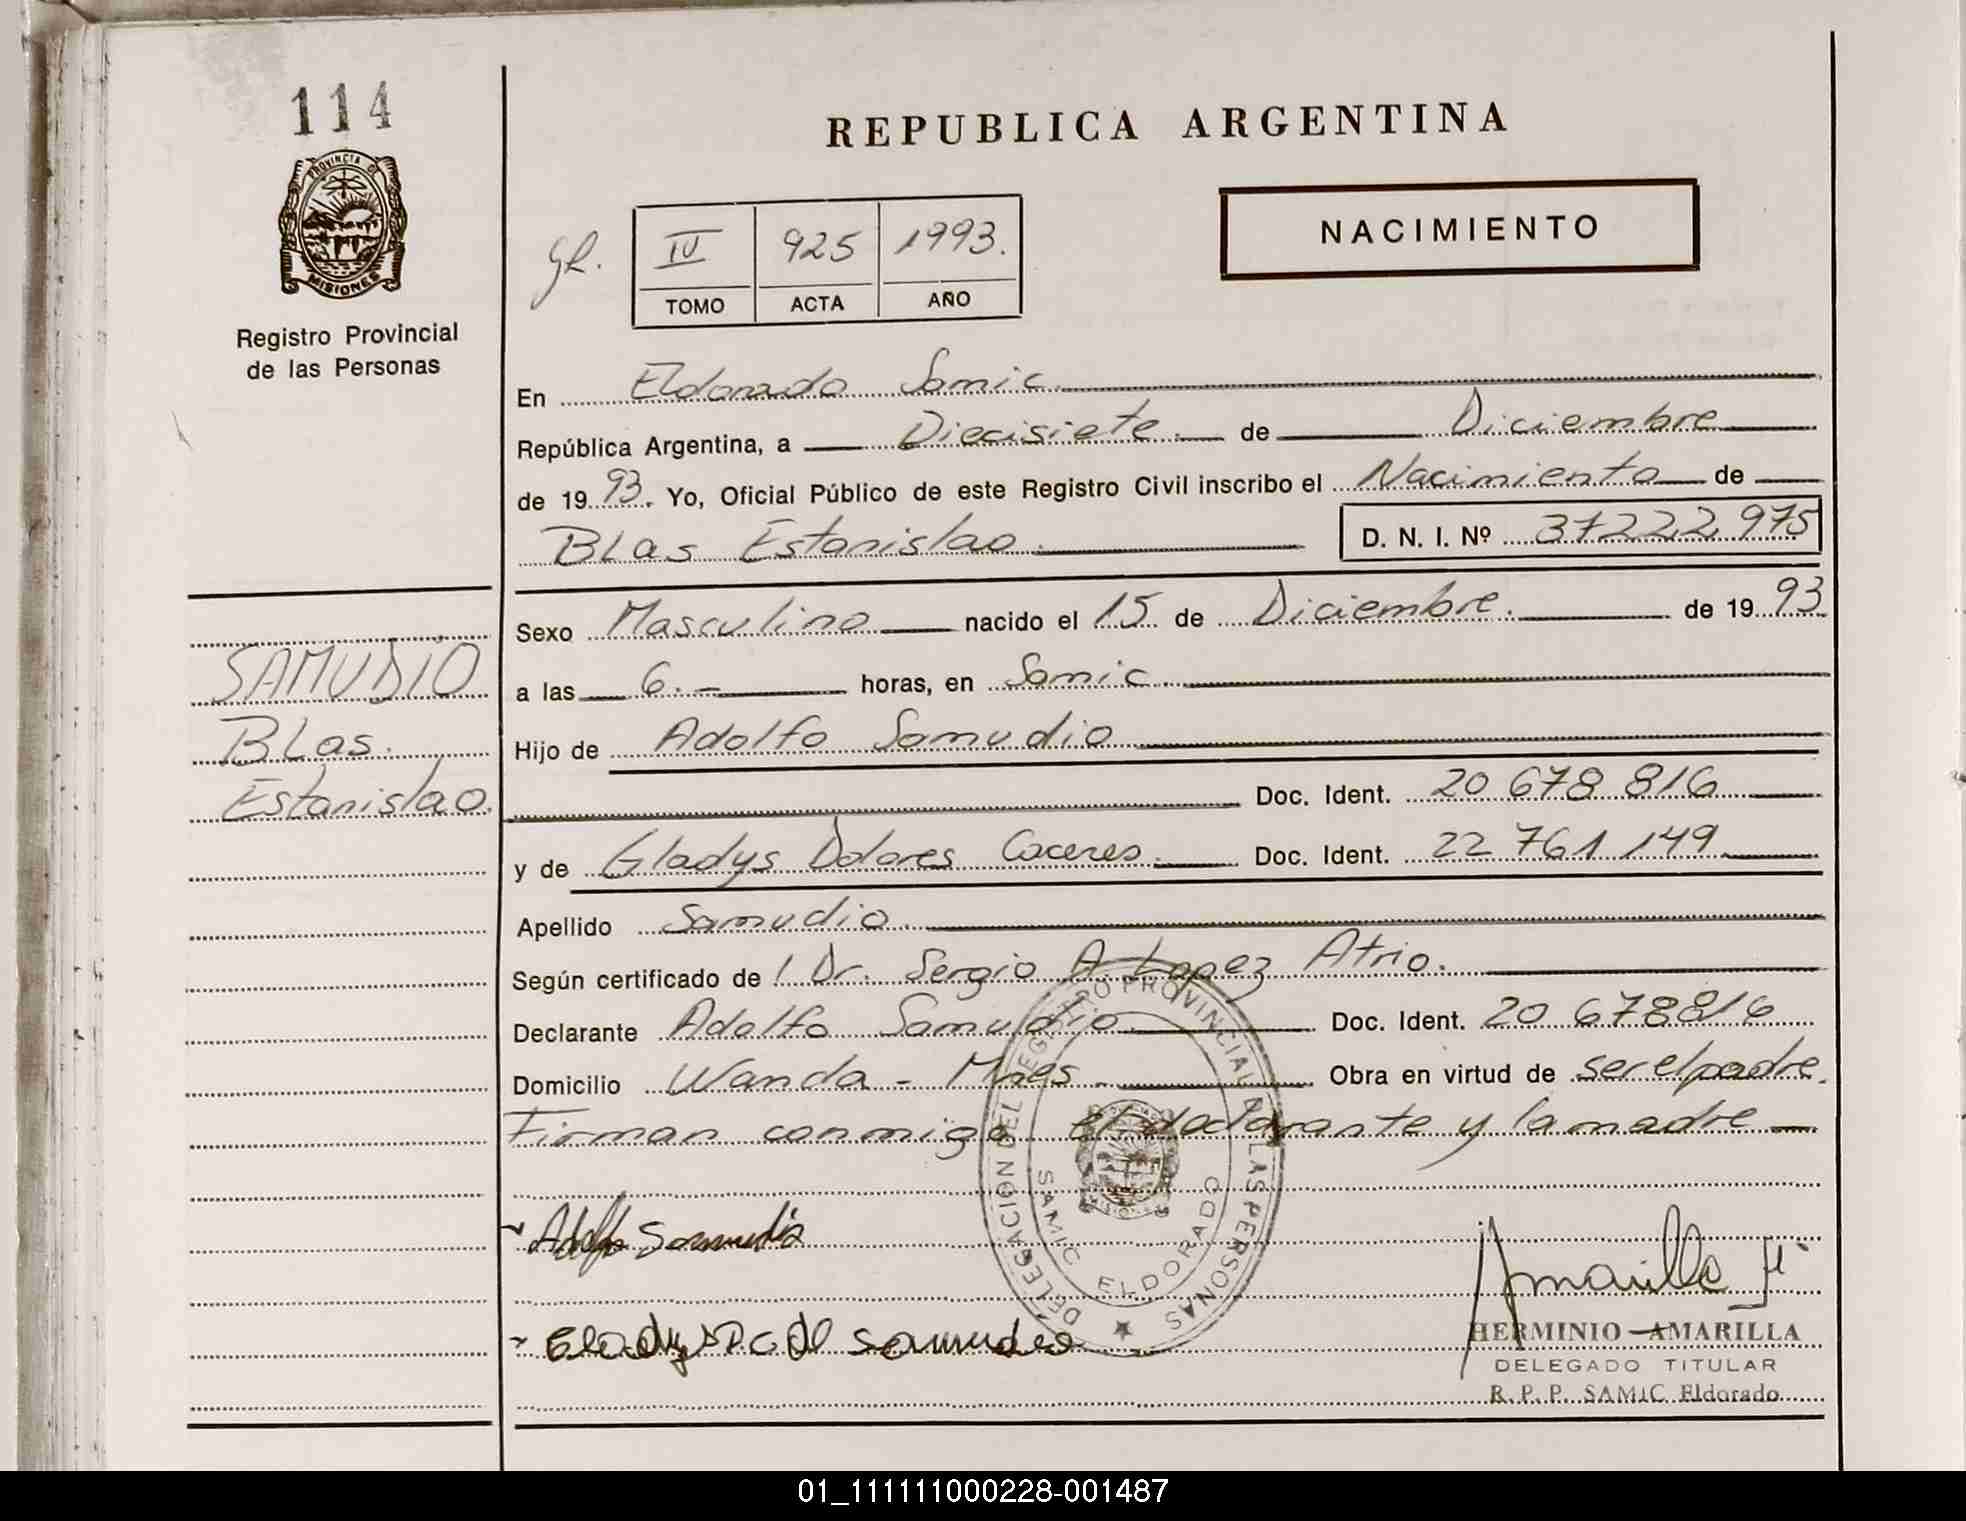 114
PROVINCIA DE
MISIONES
Registro Provincial
de las Personas
SAMUDIO
BLas.
Estanislao.
REPUBLICA ARGENTINA
NACIMIENTO
IV 925 1993.
TOMO ACTA AÑO
En Eldorado Samic.
República Argentina, a Diecisiete. de Diciembre
de 1993. Yo, Oficial Público de este Registro Civil inscribo el Nacimiento de
BLas Estanislao. D. N. I. Nº 37222975
Sexo Masculino nacido el 15 de Diciembre. de 1993
a las 6.- horas, en Samic.
Hijo de Adolfo Samudio
Doc. Ident. 20 678 816
y de Gladys Dolores Caceres. Doc. Ident. 22 761 149
Apellido Samudio.
Según certificado de / Dr. Sergio A. Lopez Atrio.
Declarante Adolfo Samudio. Doc. Ident. 20 678816
Domicilio Wanda - Mnes. Obra en virtud de ser el padre.
Firman conmigo el declarante y la madre
DELEGACION DEL REGISTRO PROVINCIAL DE LAS PERSONAS
SAMIC ELDORADO
Adolfo Samudio
Amarilla H
HERMINIO AMARILLA
DELEGADO TITULAR
R. P. P. SAMIC Eldorado
01_111111000228-001487